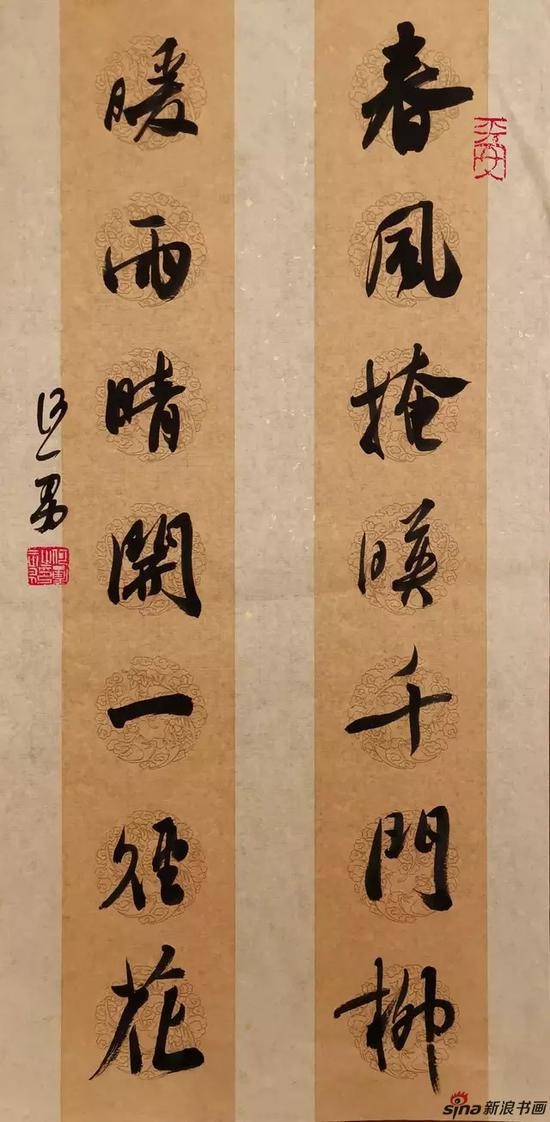 春風掩暎千門柳
平安
暖雨晴開一徑花
sina新浪书画